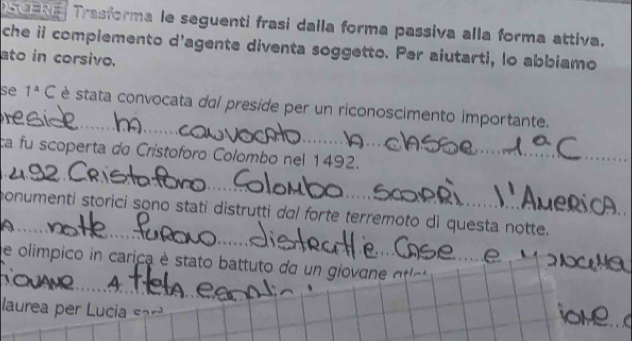 Trasforma le seguenti frasi dalla forma passiva alla forma attiva.
che il complemento d'agente diventa soggetto. Per aiutarti, lo abbiamo
ato in corsivo.
se 1ª C è stata convocata dal preside per un riconoscimento importante.
preside ha convocato la classe 1ª C
ca fu scoperta da Cristoforo Colombo nel 1492.
492 Cristoforo Colombo scoprì l'America
monumenti storici sono stati distrutti dal forte terremoto di questa notte.
A notte furono distrutte case e
e olimpico in carica è stato battuto da un giovane
iovane atleta
laurea per Lucia